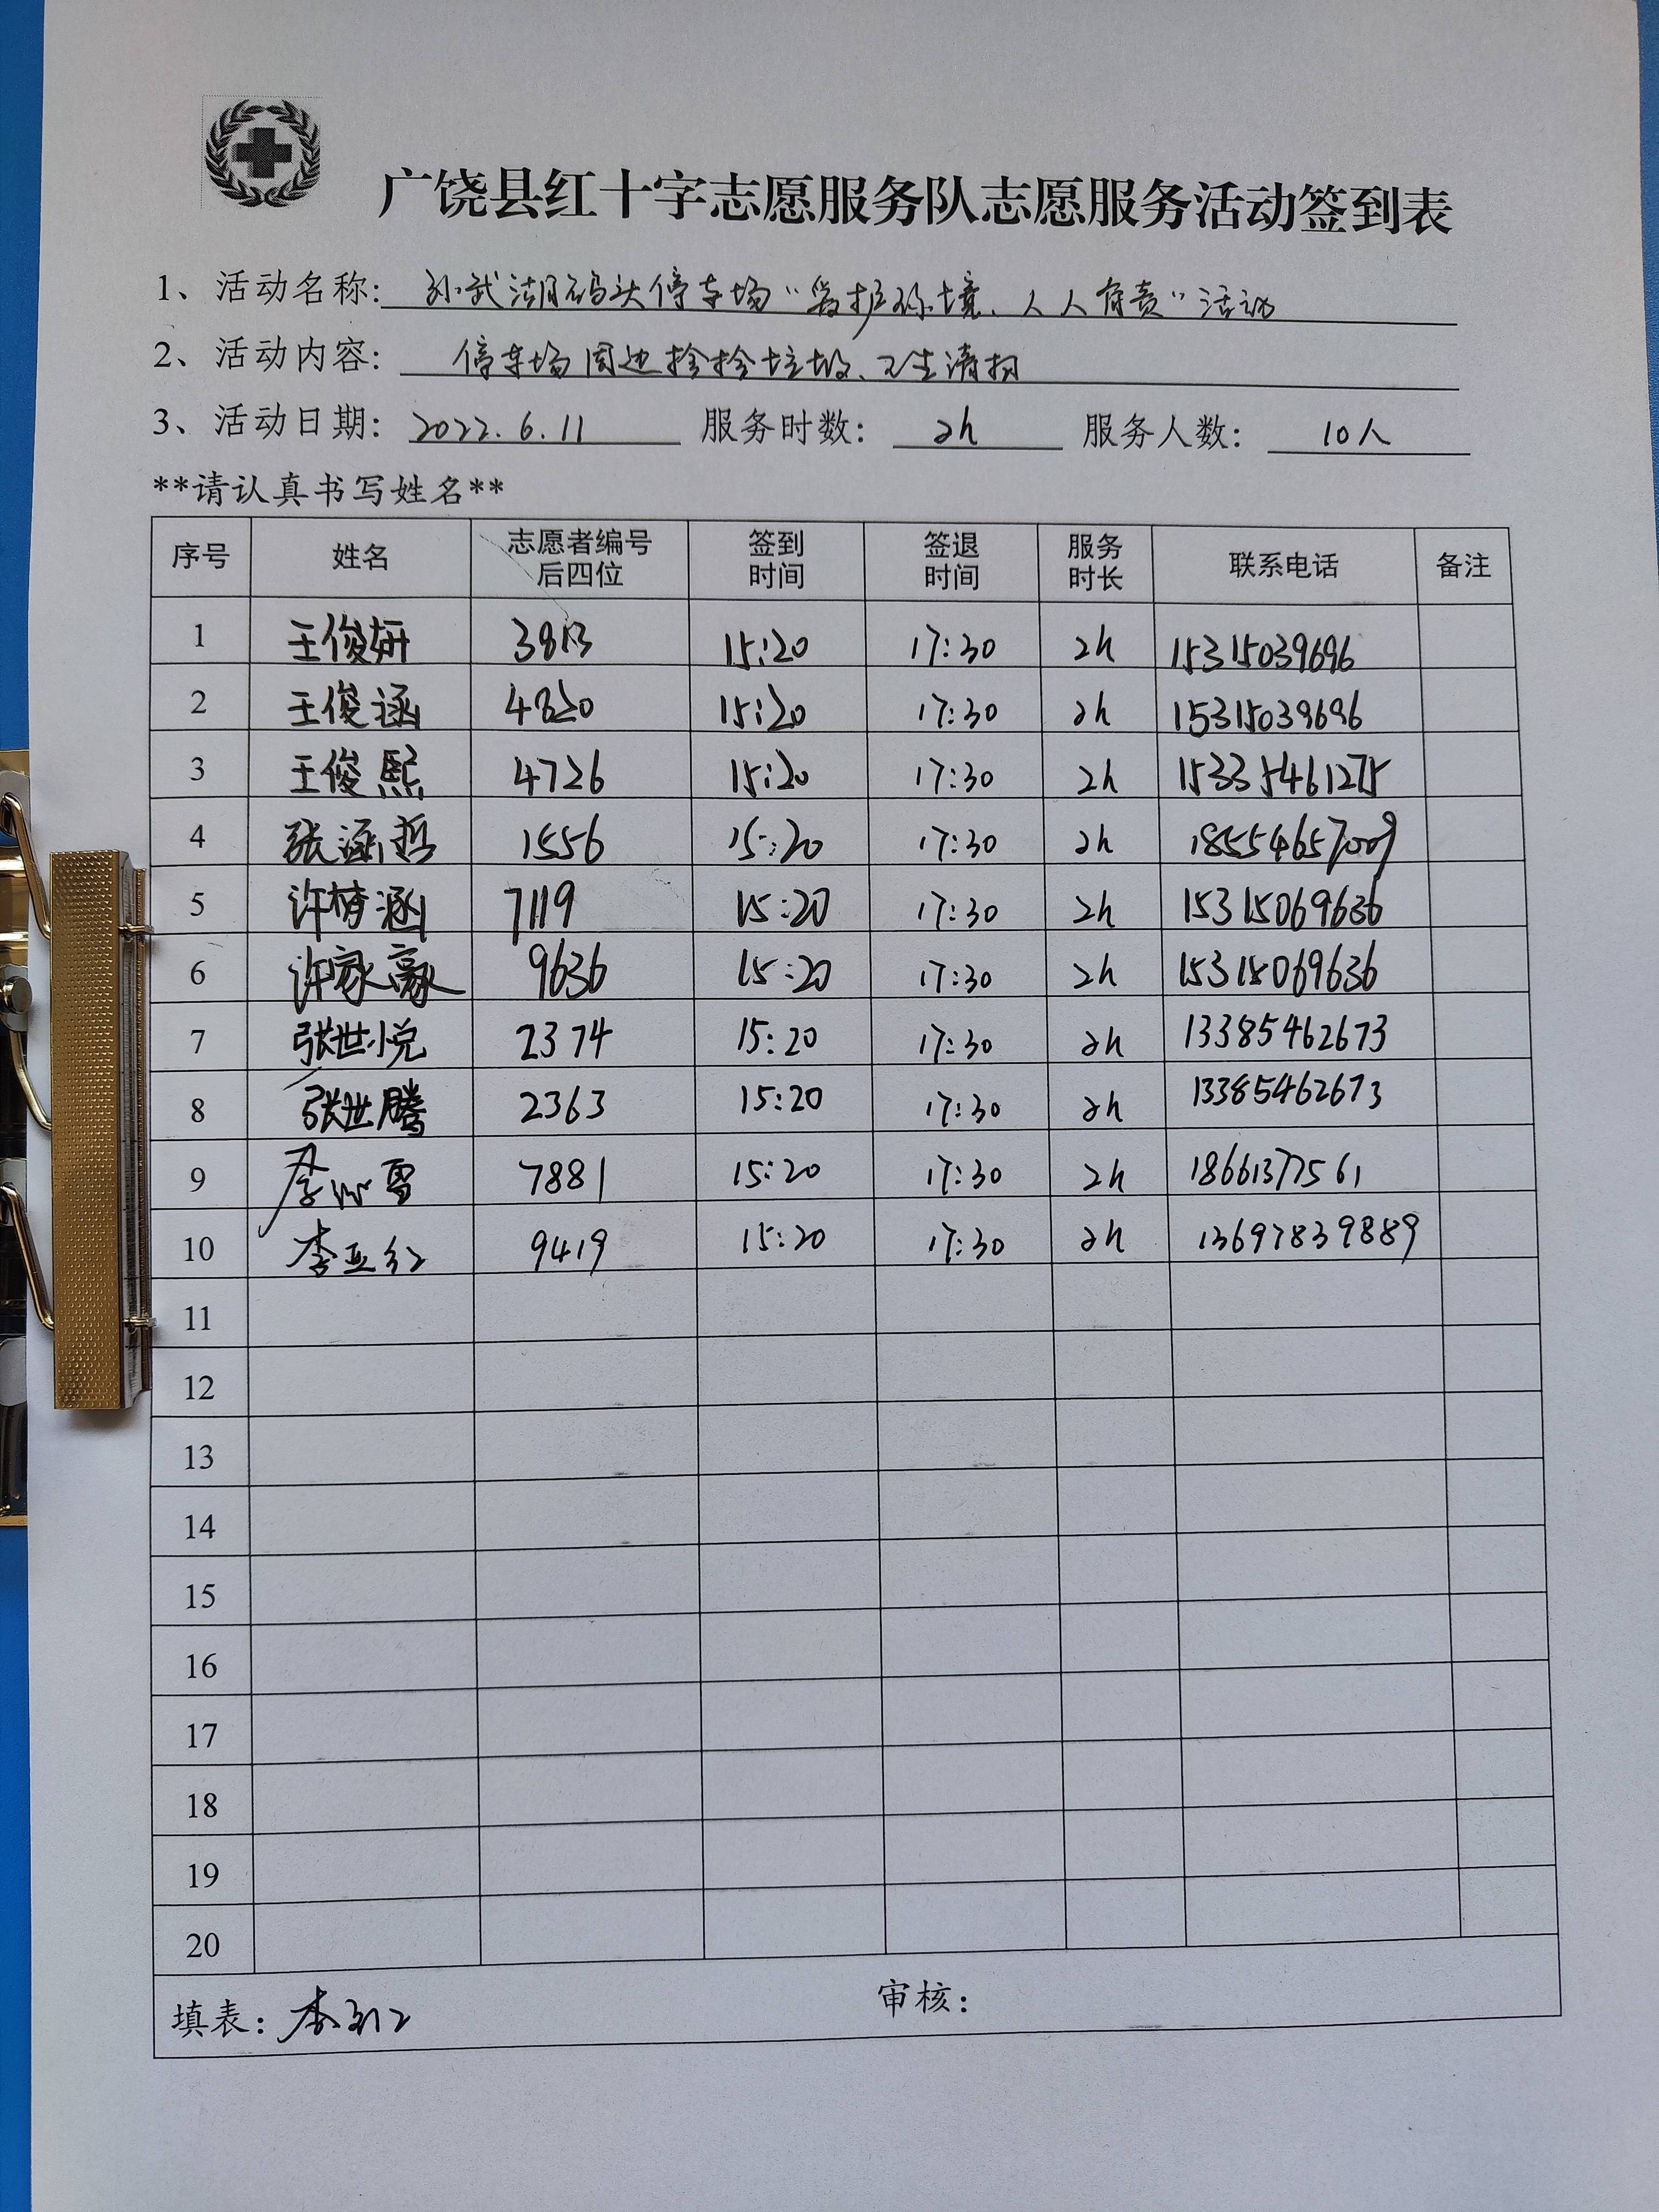 广饶县红十字志愿服务队志愿服务活动签到表
1、活动名称: 孙武湖码头停车场“爱护环境、人人有责”活动
2、活动内容: 停车场周边捡拾垃圾、卫生清扫
3、活动日期: 2022.6.11 服务时数: 2h 服务人数: 10人
**请认真书写姓名**
序号 姓名 志愿者编号后四位 签到时间 签退时间 服务时长 联系电话 备注
1 王俊妍 3813 15:20 17:30 2h 15315039696
2 王俊涵 4820 15:20 17:30 2h 15315039696
3 王俊熙 4726 15:20 17:30 2h 15335461275
4 张涵哲 1556 15:20 17:30 2h 18554657009
5 许梓涵 7119 15:20 17:30 2h 15315069636
6 许家豪 9636 15:20 17:30 2h 15315069636
7 张世悦 2374 15:20 17:30 2h 13385462673
8 张世腾 2363 15:20 17:30 2h 13385462673
9 7881 15:20 17:30 2h 18661377561
10 李亚红 9419 15:20 17:30 2h 13697839889
11
12
13
14
15
16
17
18
19
20
填表: 李亚红 审核: